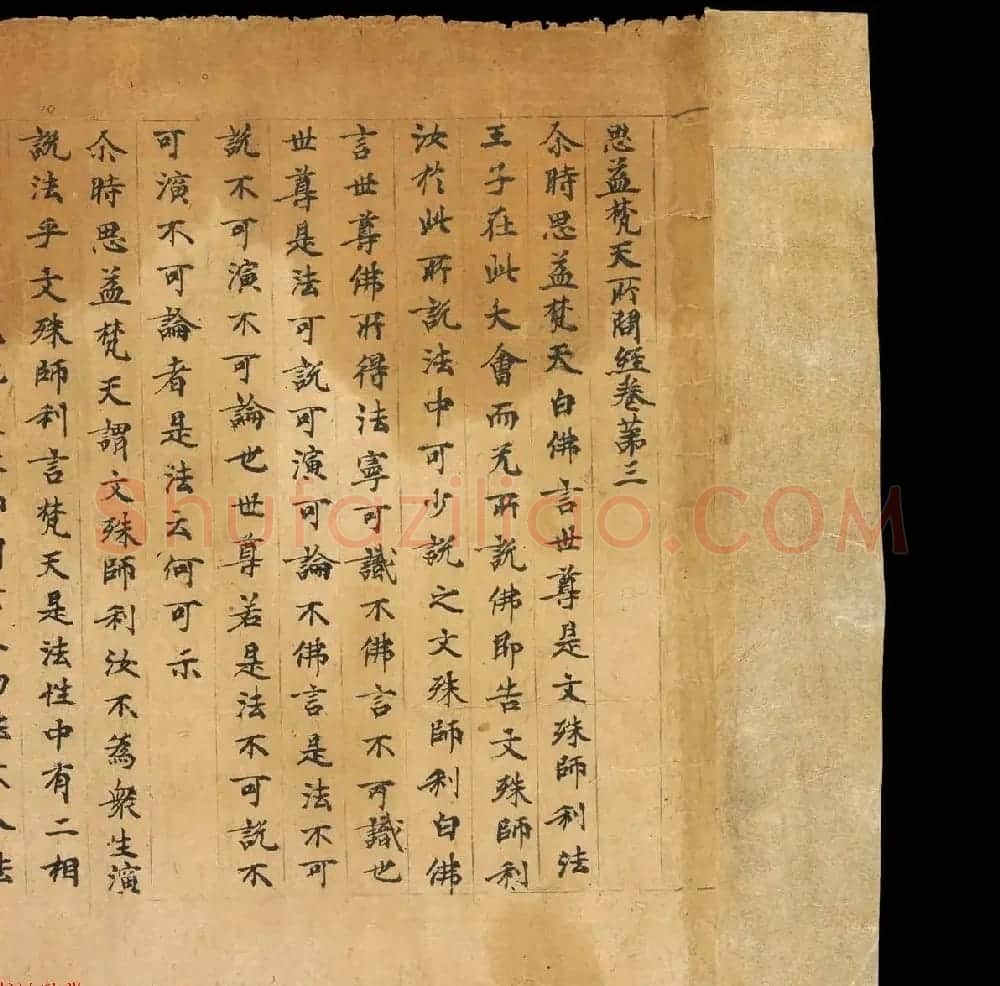 思益梵天所問經卷第三
尒時思益梵天白佛言世尊是文殊師利法
王子在此大會而无所說佛即告文殊師利
汝於此所說法中可少說之文殊師利白佛
言世尊佛所得法寧可識不佛言不可識也
世尊是法可說可演可論不佛言是法不可
說不可演不可論也世尊若是法不可說不
可演不可論者是法云何可示
尒時思益梵天謂文殊師利汝不為衆生演
說法乎文殊師利言梵天是法性中有二相
Shufaziliao.COM